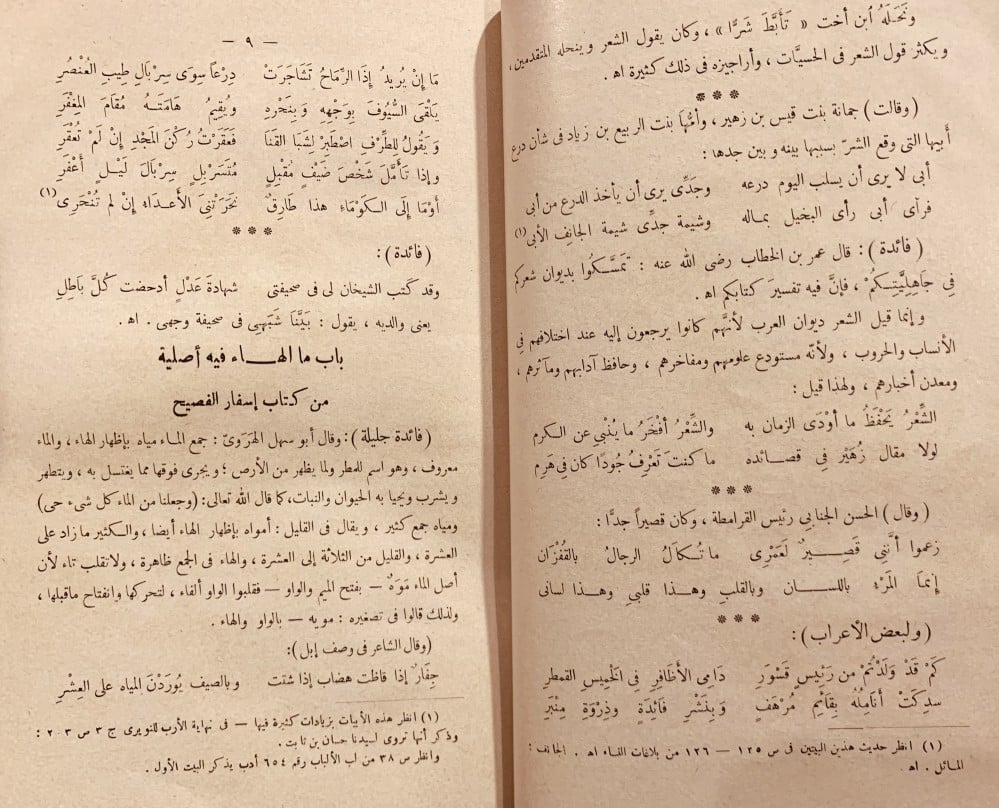 ونَحَلَهُ ابن أخت « تَأَبَّطَ شَرًّا » ، وكان يقول الشعر وينحله المتقدمين ،
ويكثر قول الشعر فى الحسيَّات ، وأراجيزه فى ذلك كثيرة اهـ .
***
(وقالت) جمانة بنت قيس بن زهير ، وأمُّها بنت الربيع بن زياد فى شأن درع
أبيها التى وقع الشرّ بسببها بينه وبين جدها :
أبى لا يرى أن يسلب اليوم درعه وجَدِّى يرى أن يأخذ الدرع من أبى
فرآى أبى رأى البخيل بماله وشيمة جدِّى شيمة الجانِف الأبى (١)
(فائدة) : قال عمر بن الخطاب رضى الله عنه : تمسَّكُوا بديوان شعركم
فِي جَاهِلِيَّتِكُمْ ، فإنَّ فيه تفسيرَ كتابكم اهـ .
وإنما قيل الشعر ديوان العرب لأنهَّم كانوا يرجعون إليه عند اختلافهم فِي
الأنساب والحروب ، ولأنَّه مستودع علومهم ومفاخرهم ، وحافظ آدابهم ومآثرهم ،
ومعدن أخبارهم ، ولهذا قيل :
الشِّعْرُ يَحْفَظُ ما أوْدَى الزمان به والشِّعْرُ أفْخَرُ ما يُنْبِي عن الكرم
لولا مقال زُهَيْر فِي قصائده ما كنتَ تَعْرِفُ جُودًا كان فى هَرِم
***
(وقال) الحسن الجنابى رئيس القرامطة ، وكان قصيراً جدًّا :
زعموا أنَّنِي قَصِيرٌ لَعَمْرِى ما تُكَالُ الرجالُ بالقُفْزَان
إِنمَا المَرْءُ باللسان وبالقلبِ وهذا قلبي وهذا لسانى
***
(ولبعض الأعراب) :
كَمْ قَدْ وَلَدْتُمْ من رَئِيسٍ قَسْوَرٍ دَامِى الأَظَافِرِ فِى الخَمِيسِ الممطر
سدِكَتْ أنَامِلُهُ بِقَائِمِ مُرْهَفٍ وَبِنَشْرِ فَائِدَةٍ وذِرْوَةِ مِنْبَرِ
(١) انظر حديث هذين البيتين فى ص ١٢٥ — ١٢٦ من بلاغات النساء اهـ . الجانف :
المـائل . اهـ
— ٩ —
مَا إِنْ يُرِيدُ إِذَا الرِّمَاحُ تَشَاجَرَتْ دِرْعاً سِوَى سِرْبَالِ طِيبِ العُنْصُرِ
يَلْقَى السُّيُوفَ بِوَجْهِهِ وَبِنَحْرِهِ وَيُقِيمُ هَامَتَهُ مُقَامَ المِغْفَرِ
وَيَقُولُ لِلطِّرْفِ اصْطَبِرْ لِشَبَا القَنَا فَعَقَرْتُ رُكْنَ المَجْدِ إِنْ لَمْ تُعْقَرِ
وإذا تَأَمَّلَ شَخْصَ ضَيْفٍ مُقْبِلٍ مُتَسَرْبِلٍ سِرْبَالَ لَيْلٍ أَغْفَرِ
أوْمَا إِلَى الكَوْمَاءِ هذا طَارِقٌ نَحَرَتْنِىَ الأَعْدَاءُ إِنْ لم تُنْحَرِى (١)
***
(فائدة) :
وقد كَتب الشيخان لى فى صحيفتى شهادةَ عَدْلٍ أدحضت كُلَّ باَطلِ
يعنى والديه ، يقول : بَيَّنَا شَبَهِى فى صحيفة وجهى . اهـ .
باب ما الهاء فيه أصلية
من كتاب إسفار الفصيح
(فائدة جليلة) : وقال أبو سهل الهَرَوىّ : جمع الماء مياه بإظهار الهاء ، والماء
معروف ، وهو اسم للمطر ولما يظهر من الأرض ؛ ويجرى فوقها مما يغتسل به ، ويتطهر
ويشرب ويحيا به الحيوان والنبات،كما قال الله تعالى: (وجعلنا من الماء كل شىء حى)
ومياه جمع كثير ، ويقال فى القليل : أمواه بإظهار الهاء أيضا ، والكثير ما زاد على
العشرة ، والقليل من الثلاثة إلى العشرة ، والهاء فى الجمع ظاهرة ، ولاتقلب تاء لأن
أصل الماء مَوَهٌ — بفتح الميم والواو — فقلبوا الواو ألفاء ، لتحركها وانفتاح ماقبلها ،
ولذلك قالوا فى تصغيره : مويه — بالواو والهاء .
(وقال الشاعر فى وصف إبل) :
جِفَارٌ إذا قاظت هضاب إذا شتت وبالصيف يُورَدْنَ المياه على العِشْرِ
(١) انظر هذه الأبيات بزيادات كثيرة فيها — فى نهاية الأرب للنويرى ج ٣ ص ٢٠٣ :
وذكر أنها تروى لسيدنا حسان بن ثابت .
وانظر ص ٣٨ من لب الألباب رقم ٦٥٤ أدب يذكر البيت الأول .